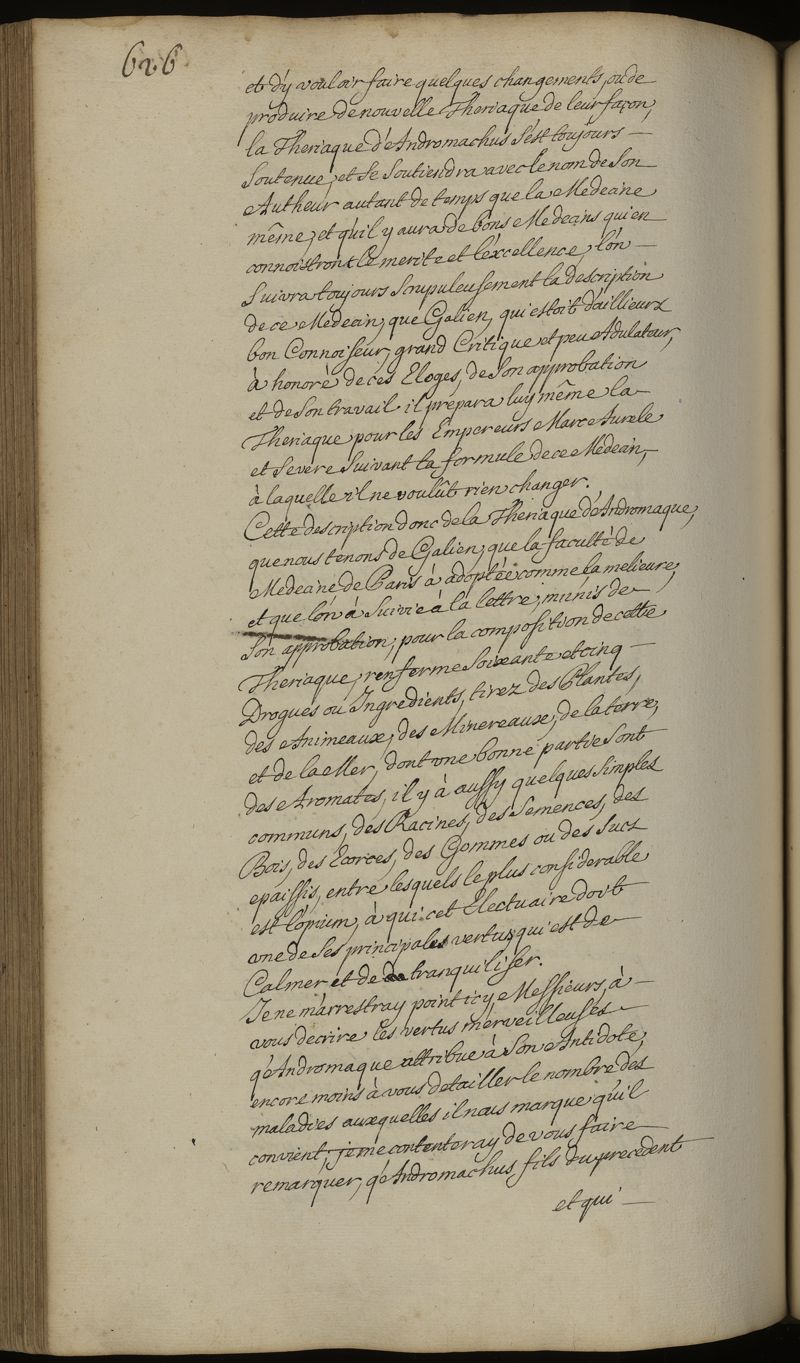 626
et d'y vouloir faire quelques changements, ou de
produire de nouvelle Theriaque de leur façon,
la Theriaque d'Andromachus s'est toujours —
soutenue, et se soutiendra avec le nom de son
Autheur autant de temps que la Medecine
même, et qu'il y aura de bons Medecins qui en
connoistront le merite et l'excellence, l'on —
suivra toujours scrupuleusement la description
de ce Medecin, que Galien, qui estoit d'ailleurs
bon Connoiseur, grand Critique et peu Adulateur,
à honoré de ces Eloges, de son approbation
et de son travail il prepara luy même la
Theriaque pour les Empereurs Marc Aurele
et Severe suivant la formule de ce Medecin,
à laquelle il ne voulût rien changer.
Cette description donc de la Theriaque d'Andromaque,
que nous tenons de Galien, que la faculté de
Medecine de Paris à adoptée comme la melieure,
et que l'on à suivie à la lettre, munis de
son approbation, pour la composition de cette
Theriaque, renferme soixante et cinq —
Drogues ou Ingredients, tirez des Plantes,
des Animeaux, des Minereaux, de la terre,
et de la Mer, dont une bonne partie sont
des Aromates, il y à aussy quelques simples
communs, des Racines, des Semences, des
Bois, des Ecorces, des Gommes ou des sucs
epaissis, entre lesquels le plus considerable
est l'opium, à qui cet Electuaire doit
une de ses principales vertus, qui est de
Calmer et de tranquiliser.
Je ne m'arrestray point icy, Messieurs, à —
vous decrire les vertus merveilleuses
q'Andromaque attribue à son Antidote,
encore moins à vous detailler le nombre des
maladies auxquelles il nous marque qu'il
convient, je me contenteray de vous faire
remarquer, q'Andromachus fils du precedent
et qui —